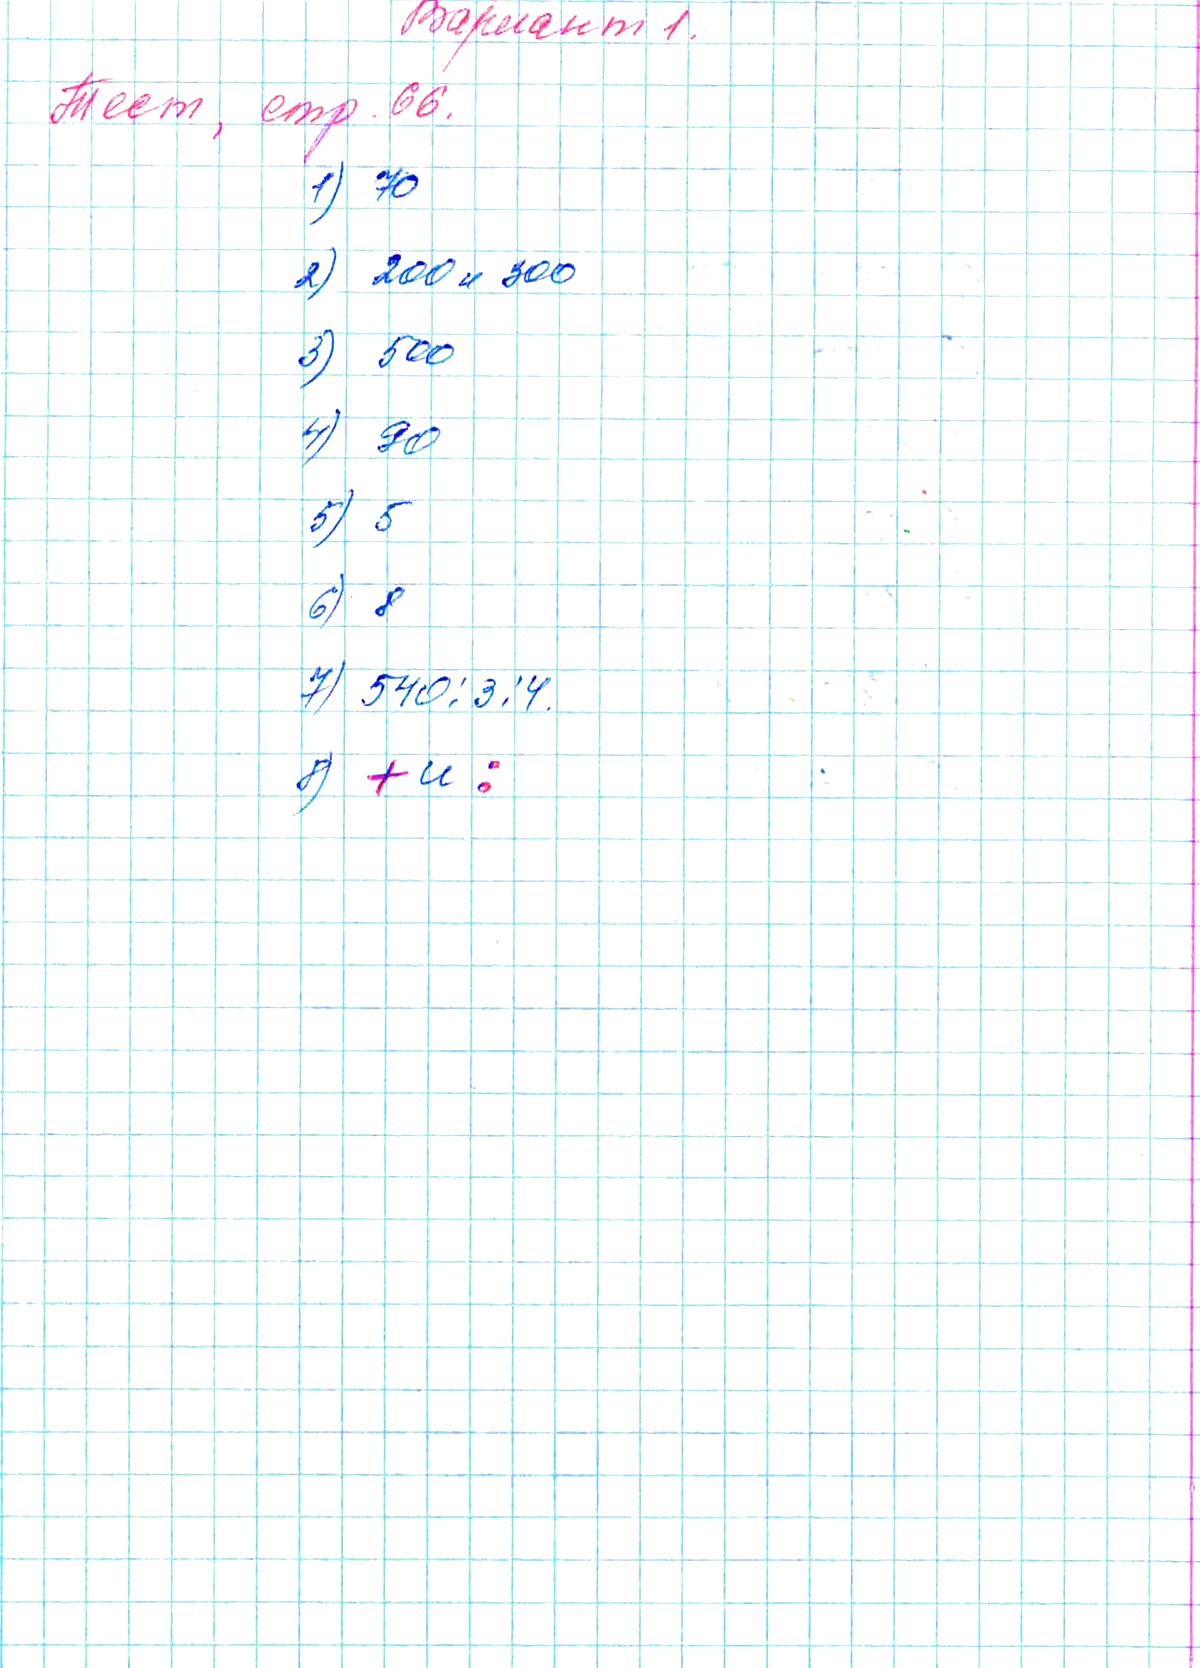 Вариант 1.
Тест, стр. 66.
1) 70
2) 200 и 300
3) 500
4) 90
5) 5
6) 8
7) 540:3:4.
8) + и :